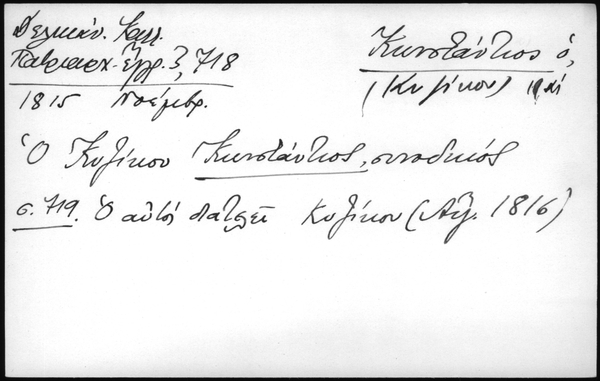 Δελικάν. Καλλ.
Πατριαρχ. Ἔγγρ. 3, 718
1815 Νοέμβρ.
Κωνστάντιος ὁ,
(Κυζίκου) καί
Ὁ Κυζίκου Κωνστάντιος, συνοδικός
σ. 719. Ὁ αὐτός διατελεῖ Κυζίκου (Αὔγ. 1816)